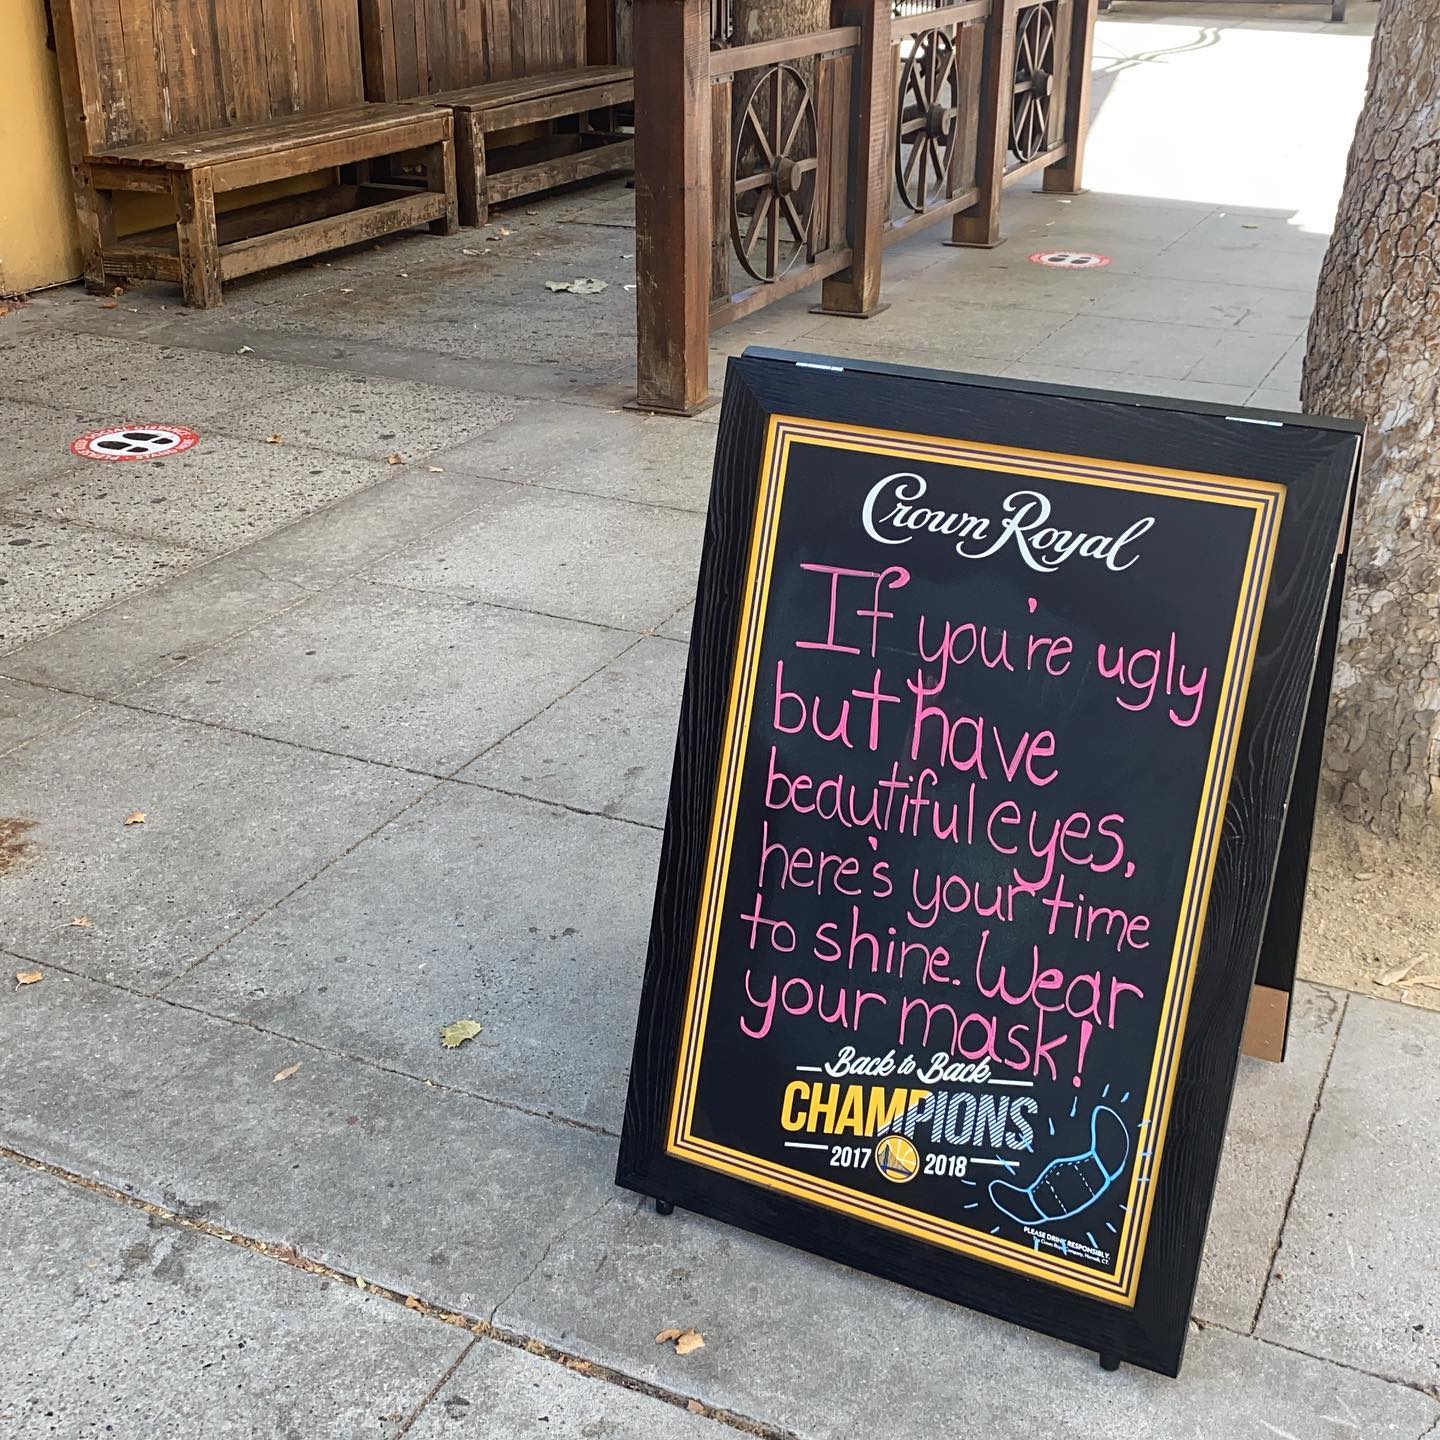 Crown Royal
If you're ugly
but have
beautiful eyes,
here's your time
to shine. Wear
your mask!
Back to Back
CHAMPIONS
2017 2018
PLEASE DRINK RESPONSIBLY.
PLEASE KEEP SOCIAL DISTANCE
STAND HERE